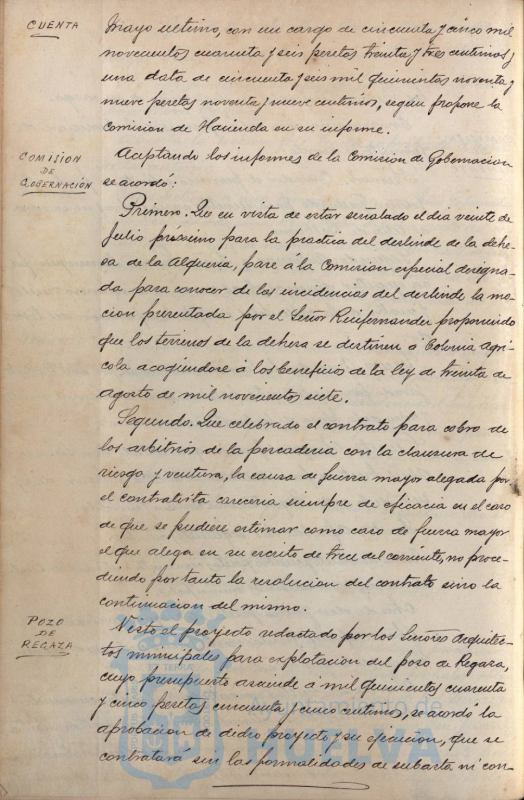 CUENTA
Mayo ultimo, con un cargo de cincuenta y cinco mil
novecientos cuarenta y seis pesetas treinta y tres centimos y
una data de cincuenta y seis mil quinientas noventa y
nueve pesetas noventa y nueve centimos, segun propone la
Comision de Hacienda en su informe.
COMISION
DE
GOBERNACIÓN
Aceptando los informes de la Comision de Gobernacion
se acordó:
Primero. Que en vista de estar señalado el dia veinte de
Julio próximo para la practica del deslinde de la dehe-
sa de la Alqueria, pase á la Comision especial designa-
da para conocer de las incidencias del deslinde la mo-
cion presentada por el Señor Ruifernandez proponiendo
que los terrenos de la dehesa se destinen á Colonia Agri-
cola acogiendose á los beneficios de la ley de treinta de
agosto de mil novecientos siete.
Segundo. Que celebrado el contrato para cobro de
los arbitrios de la pescaderia con la clausura de
riesgo y ventura, la causa de fuerza mayor alegada por
el contratista careceria siempre de eficacia en el caso
de que se pudiese estimar como caso de fuerza mayor
el que alega en su escrito de trece del corriente, no proce-
diendo por tanto la resolucion del contrato sino la
continuacion del mismo.
POZO
DE
REGAZA
Visto el proyecto redactado por los Señores Arquitec-
tos municipales para explotacion del pozo de Regaza,
cuyo presupuesto asciende á mil quinientas cuarenta
y cinco pesetas cincuenta y cinco centimos, se acordó la
aprobacion de dicho proyecto y su ejecucion, que se
contratará sin las formalidades de subasta ni con-
Ayuntamiento de
HUELVA